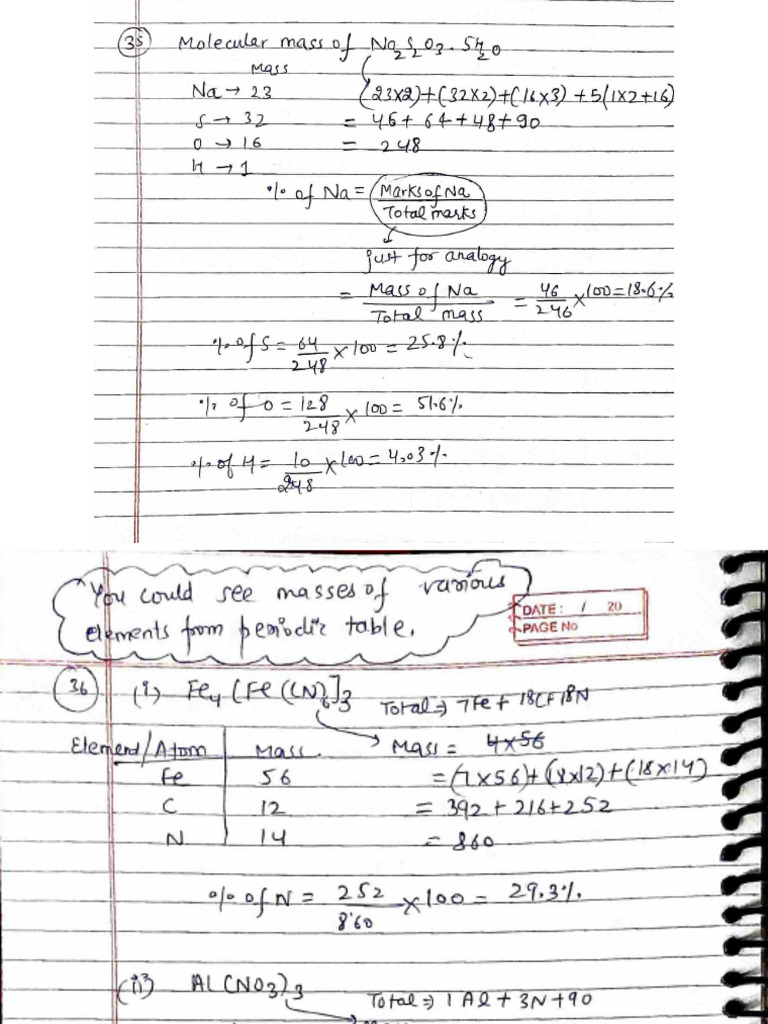 35 Molecular mass of Na2S2O3.5H2O
Mass
Na → 23 (23×2)+(32×2)+(16×3)+5(1×2+16)
S → 32 = 46+64+48+90
O → 16 = 248
H → 1
% of Na = Marks of Na / Total marks
just for analogy
= Mass of Na / Total mass = 46/246 ×100=18.6%
% of S = 64/248 ×100 = 25.8%
% of O = 128/248 ×100= 51.6%
% of H = 10/248 ×100=4.03%
You could see masses of various
elements from periodic table.
DATE: / 20
PAGE No
36 (i) Fe4[Fe(CN)6]3 Total ⇒ 7Fe + 18C+18N
Element/Atom Mass Mass = 4×56
Fe 56 =(7×56)+(8×12)+(18×14)
C 12 = 392+216+252
N 14 = 860
% of N = 252/860 ×100= 29.3%.
(ii) Al(NO3)3 Total ⇒ 1Al+3N+9O